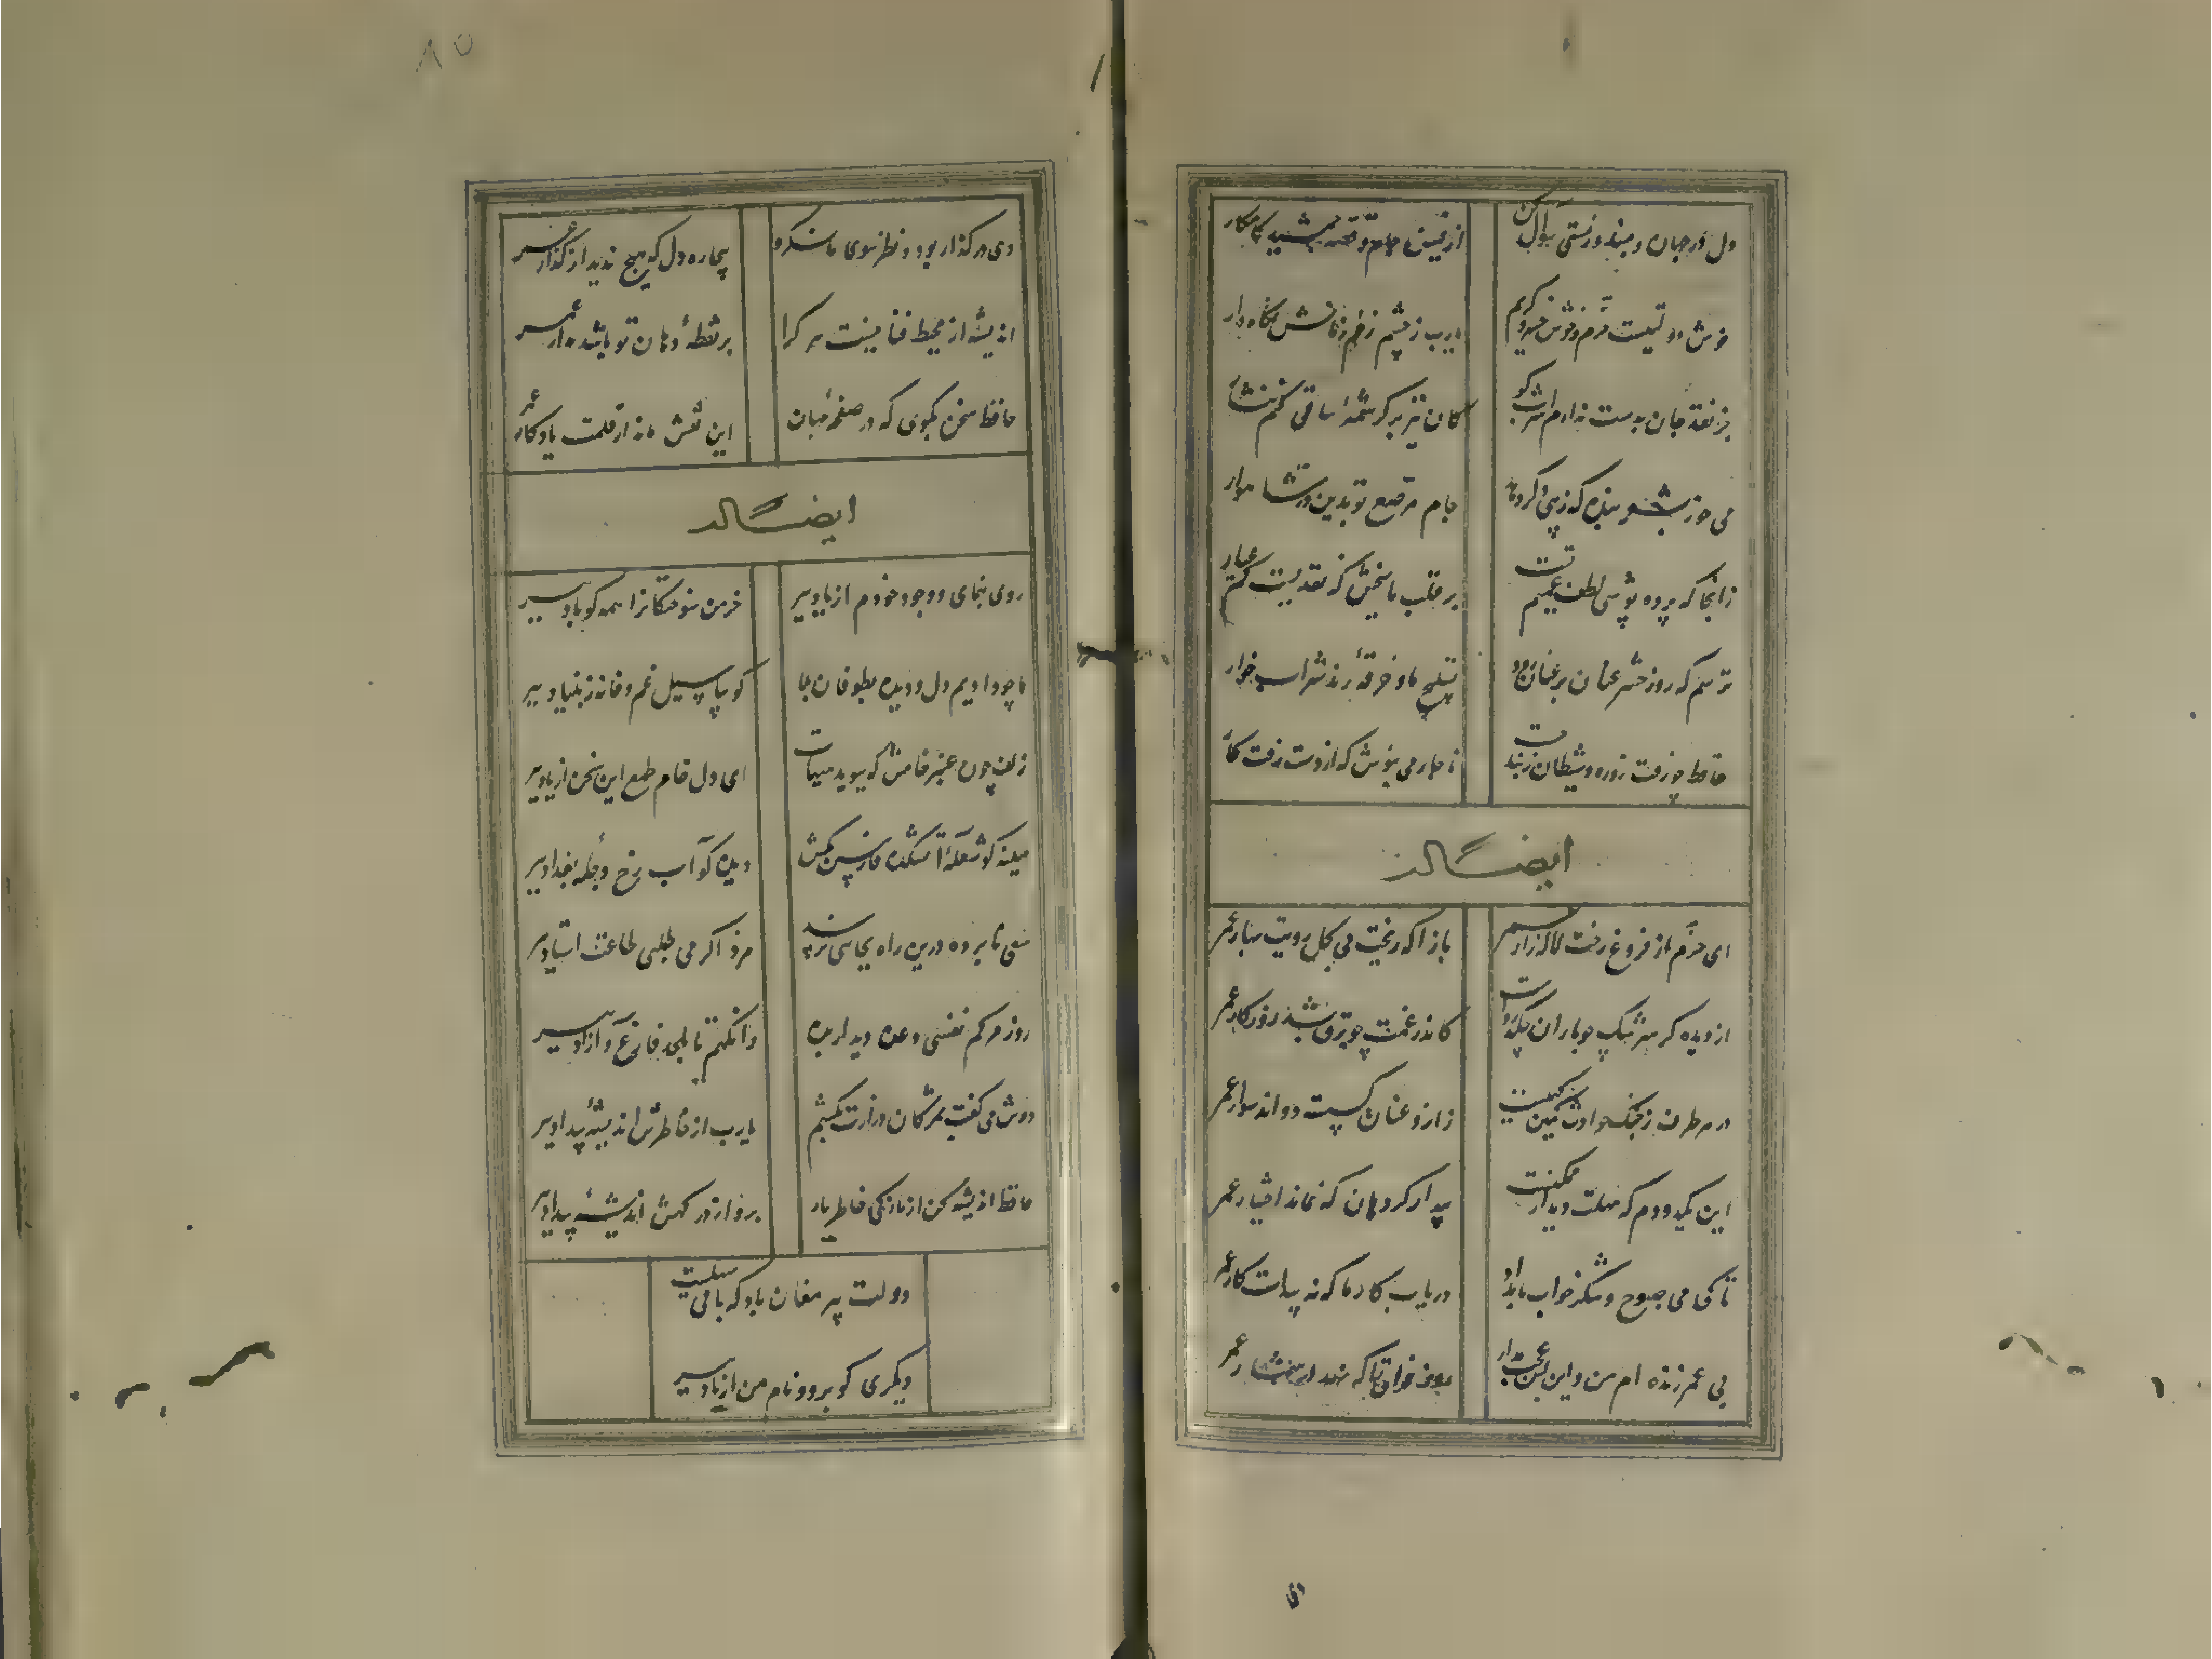 دل در جهان مبند و ز مستی سؤال کن
از فیض جام و قصه جمشید کامکار
خوش دولتیست خرم و خوش خسرو کریم
یارب ز چشم زخم زمانش نگاه دار
جز نقد جان بدست ندارم شراب کو
کان نیز بر کرشمهٔ ساقی کنم نثار
می خور بشعر بنده که زیبی دگر دهد
جام مرصع تو بدین در شاهوار
زانجا که پرده پوشی لطف عمیم تست
بر قلب ما ببخش که نقدیست کم عیار
ترسم که روز حشر عنان بر عنان رود
تسبیح ما و خرقهٔ رند شرابخوار
حافظ چو رفت روزه و
ناچار می بنوش که از دست رفت کار
ایضاً له
ای خرم از فروغ رخت لاله زار عمر
بازا که ریخت بی گل رویت بهار عمر
از دیده گر سرشک چو باران چکد رواست
کاندر غمت چو برق بشد روزگار عمر
در هر طرف ز جنگ حوادث کمین گهیست
زانرو عنان گسسته دواند سوار عمر
این یکدو دم که مهلت دیدار ممکنست
دریاب کار ما که نه پیداست کار عمر
تا کی می صبوح و شکر خواب بامداد
بیدار گرد هان که نماند اختیار عمر
بی عمر زنده ام من و این بس عجب مدار
روز فراق را که نهد در شمار عمر
۸۵
دی در گذار بود و نظر سوی ما نکرد
بیچاره دل که هیچ ندید از گذار عمر
اندیشه از محیط فنا نیست هر کرا
بر نقطهٔ دهان تو باشد مدار عمر
حافظ سخن بگوی که در صفحهٔ جهان
این نقش ماند از قلمت یادگار عمر
ایضاً له
روی بنمای و وجود خودم از یاد ببر
خرمن سوختگانرا همه گو باد ببر
ما چو دادیم دل و دیده بطوفان بلا
گو بیا سیل غم و خانه ز بنیاد ببر
زلف چون عنبر خامش که ببوید هیهات
ای دل خام طمع این سخن از یاد ببر
سینه گو شعلهٔ آتشکده فارس بکش
دیده گو آب رخ دجلهٔ بغداد ببر
سعی نابرده درین راه بجایی نرسی
مزد اگر می طلبی طاعت استاد ببر
روز مرگم نفسی وعده دیدار بده
وانگهم تا بلحد فارغ و آزاد ببر
دوش می گفت بمژگان درازت بکشم
یارب از خاطرش اندیشهٔ بیداد ببر
حافظ اندیشه کن از نازکی خاطر یار
برو از درگهش اندیشهٔ بیداد ببر
دولت پیر مغان باد که باقی سهلست
دیگری گو برو و نام من از یاد ببر